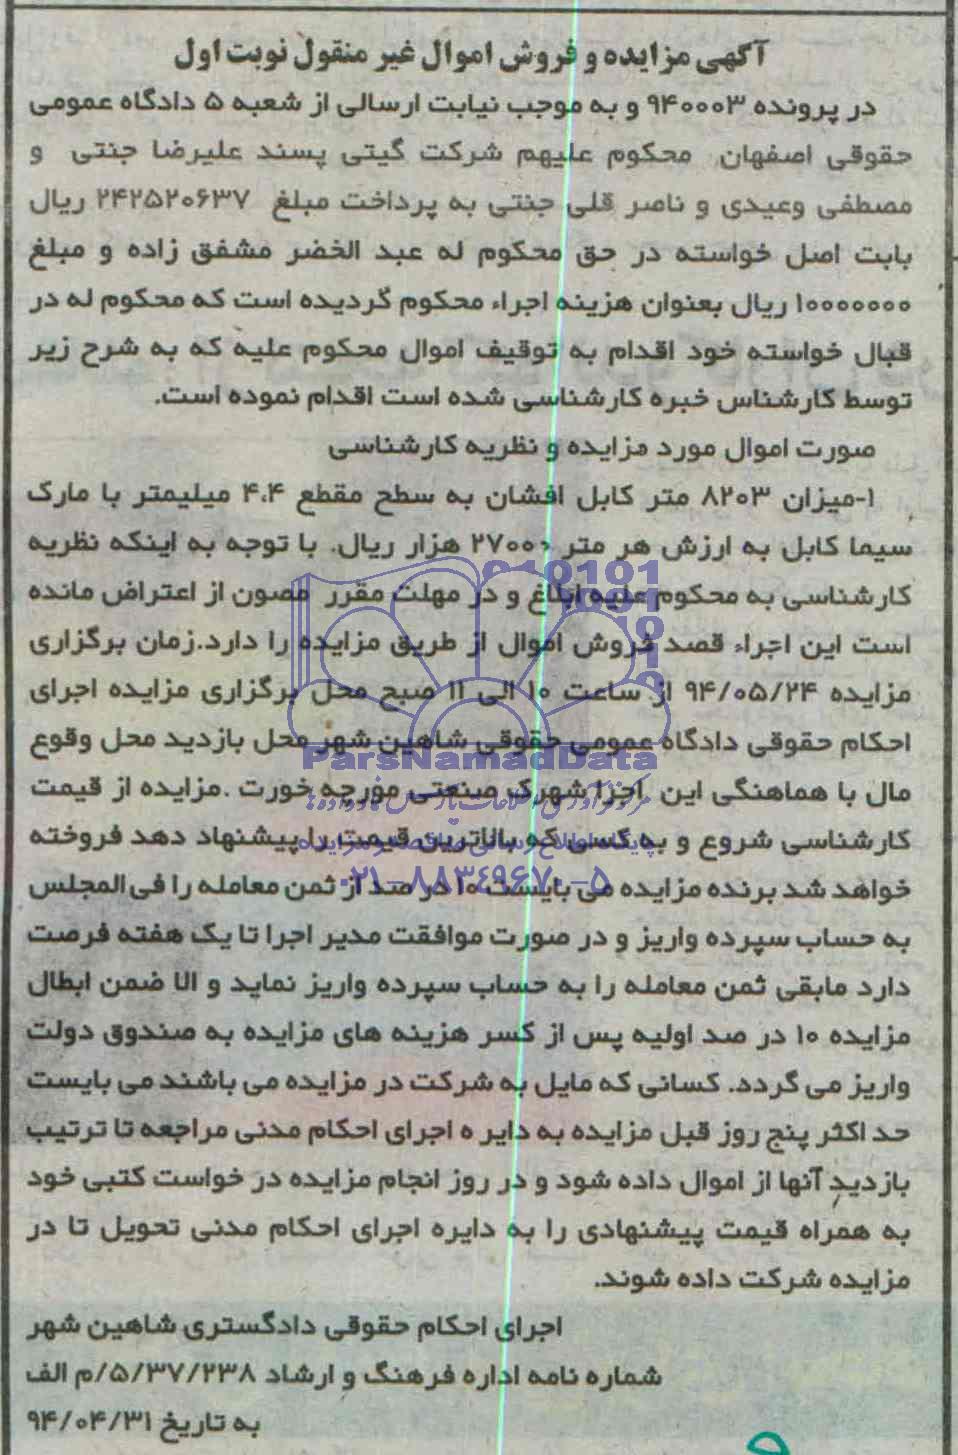 آگهی مزایده و فروش اموال غیر منقول نوبت اول
در پرونده ۹۴۰۰۰۳ و به موجب نیابت ارسالی از شعبه ۵ دادگاه عمومی
حقوقی اصفهان محکوم علیهم شرکت گیتی پسند علیرضا جنتی و
مصطفی وعیدی و ناصر قلی جنتی به پرداخت مبلغ ۲۴۲۵۲۰۶۳۷ ریال
بابت اصل خواسته در حق محکوم له عبد الخضر مشفق زاده و مبلغ
۱۰۰۰۰۰۰۰ ریال بعنوان هزینه اجراء محکوم گردیده است که محکوم له در
قبال خواسته خود اقدام به توقیف اموال محکوم علیه که به شرح زیر
توسط کارشناس خبره کارشناسی شده است اقدام نموده است.
صورت اموال مورد مزایده و نظریه کارشناسی
۱-میزان ۸۲۰۳ متر کابل افشان به سطح مقطع ۴،۴ میلیمتر با مارک
سیما کابل به ارزش هر متر ۲۷۰۰۰ هزار ریال. با توجه به اینکه نظریه
کارشناسی به محکوم علیه ابلاغ و در مهلت مقرر مصون از اعتراض مانده
است این اجراء قصد فروش اموال از طریق مزایده را دارد.زمان برگزاری
مزایده ۹۴/۰۵/۲۴ از ساعت ۱۰ الی ۱۱ صبح محل برگزاری مزایده اجرای
احکام حقوقی دادگاه عمومی حقوقی شاهین شهر محل بازدید محل وقوع
ParsNamadData
مال با هماهنگی این اجرا شهرک صنعتی مورچه خورت .مزایده از قیمت
کارشناسی شروع و به کسی که بالاترین قیمت را پیشنهاد دهد فروخته
خواهد شد برنده مزایده می بایست ۱۰ در صد از ثمن معامله را فی المجلس
۰۲۱-۸۸۳۴۹۶۷۰-۵
به حساب سپرده واریز و در صورت موافقت مدیر اجرا تا یک هفته فرصت
دارد مابقی ثمن معامله را به حساب سپرده واریز نماید و الا ضمن ابطال
مزایده ۱۰ در صد اولیه پس از کسر هزینه های مزایده به صندوق دولت
واریز می گردد. کسانی که مایل به شرکت در مزایده می باشند می بایست
حد اکثر پنج روز قبل مزایده به دایر ه اجرای احکام مدنی مراجعه تا ترتیب
بازدید آنها از اموال داده شود و در روز انجام مزایده در خواست کتبی خود
به همراه قیمت پیشنهادی را به دایره اجرای احکام مدنی تحویل تا در
مزایده شرکت داده شوند.
اجرای احکام حقوقی دادگستری شاهین شهر
شماره نامه اداره فرهنگ و ارشاد ۵/۳۷/۲۳۸/م الف
به تاریخ ۹۴/۰۴/۳۱